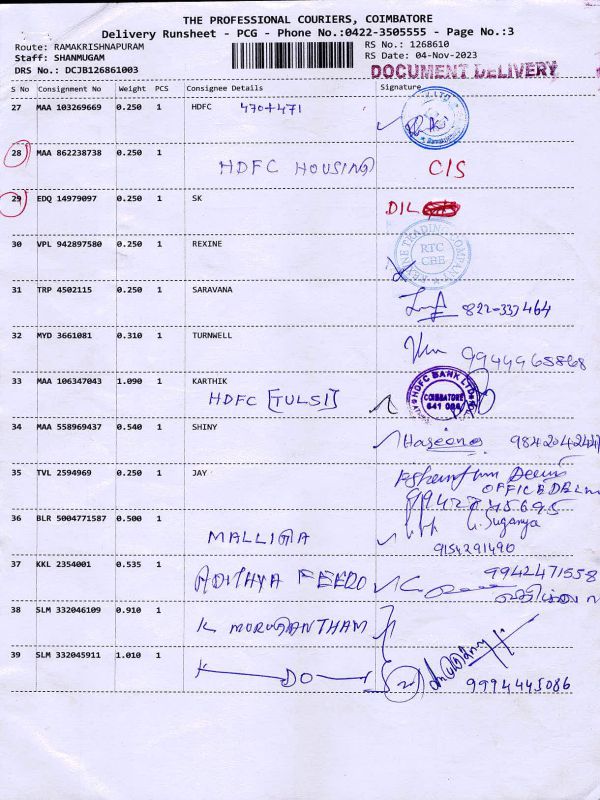 THE PROFESSIONAL COURIERS, COIMBATORE
Delivery Runsheet - PCG - Phone No.:0422-3505555 - Page No.:3
Route: RAMAKRISHNAPURAM
Staff: SHANMUGAM
DRS No.: DCJB126861003
RS No.: 1268610
RS Date: 04-Nov-2023
DOCUMENT DELIVERY
S No Consignment No Weight PCS Consignee Details Signature
27 MAA 103269669 0.250 1 HDFC 470+471
28 MAA 862238738 0.250 1
HDFC HOUSING C/S
29 EDQ 14979097 0.250 1 SK
DIL
30 VPL 942897580 0.250 1 REXINE
REXINE TRADING COMPANY
RTC
CBE
31 TRP 4502115 0.250 1 SARAVANA
822-337464
32 MYD 3661081 0.310 1 TURNWELL
9944965868
33 MAA 106347043 1.090 1 KARTHIK
HDFC [TULSI]
HDFC BANK LTD
COIMBATORE
641 004
34 MAA 558969437 0.540 1 SHINY
35 TVL 2594969 0.250 1 JAY
36 BLR 5004771587 0.500 1
G. Suganya
MALLIGA
9154291490
37 KKL 2354001 0.535 1
9942471558
ADITHYA FEED
38 SLM 332046109 0.910 1
K MURUGANTHAM
39 SLM 332045911 1.010 1
DO
9994445086